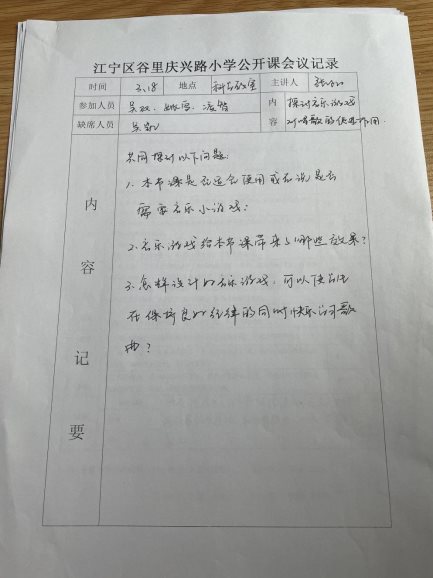 江宁区谷里庆兴路小学公开课会议记录
时间 3.18 地点 科吉教室 主讲人
参加人员 吴双、姚雪、凌
内容 探讨音乐游戏
对唱歌的促进作用.
缺席人员 吴
共同探讨以下问题:
1、本节课是否适合使用或者说是否
需要音乐小游戏;
2、音乐游戏给本节课带来了哪些效果?
3、怎样设计的音乐游戏,可以使学生
在保持良好纪律的同时快乐学习歌
曲?
内容记要